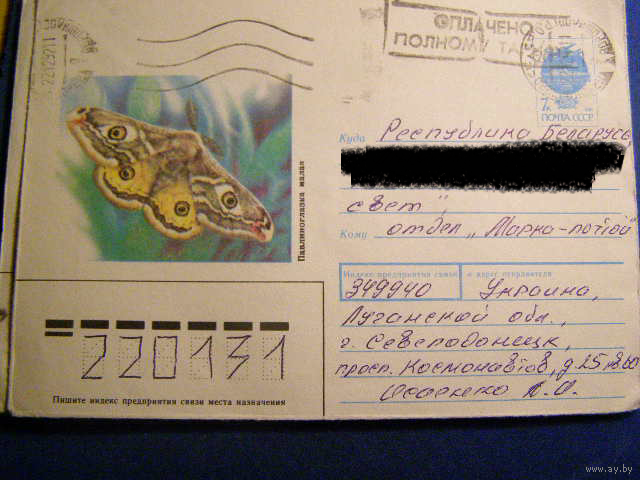 ОПЛАЧЕНО
ПОЛНОМУ ТА
7к
ПОЧТА СССР
22 12 92 11
Павлиноглазка малая
Куда Республика Беларусь,
свет"
Кому отдел „Марка-лотто"
Индекс предприятия связи и адрес отправителя
349940 Украина,
Луганской обл.,
г. Северодонецк,
просп. Космонавтов, д 25 кв 60
220131
Пишите индекс предприятия связи места назначения
www.ay.by